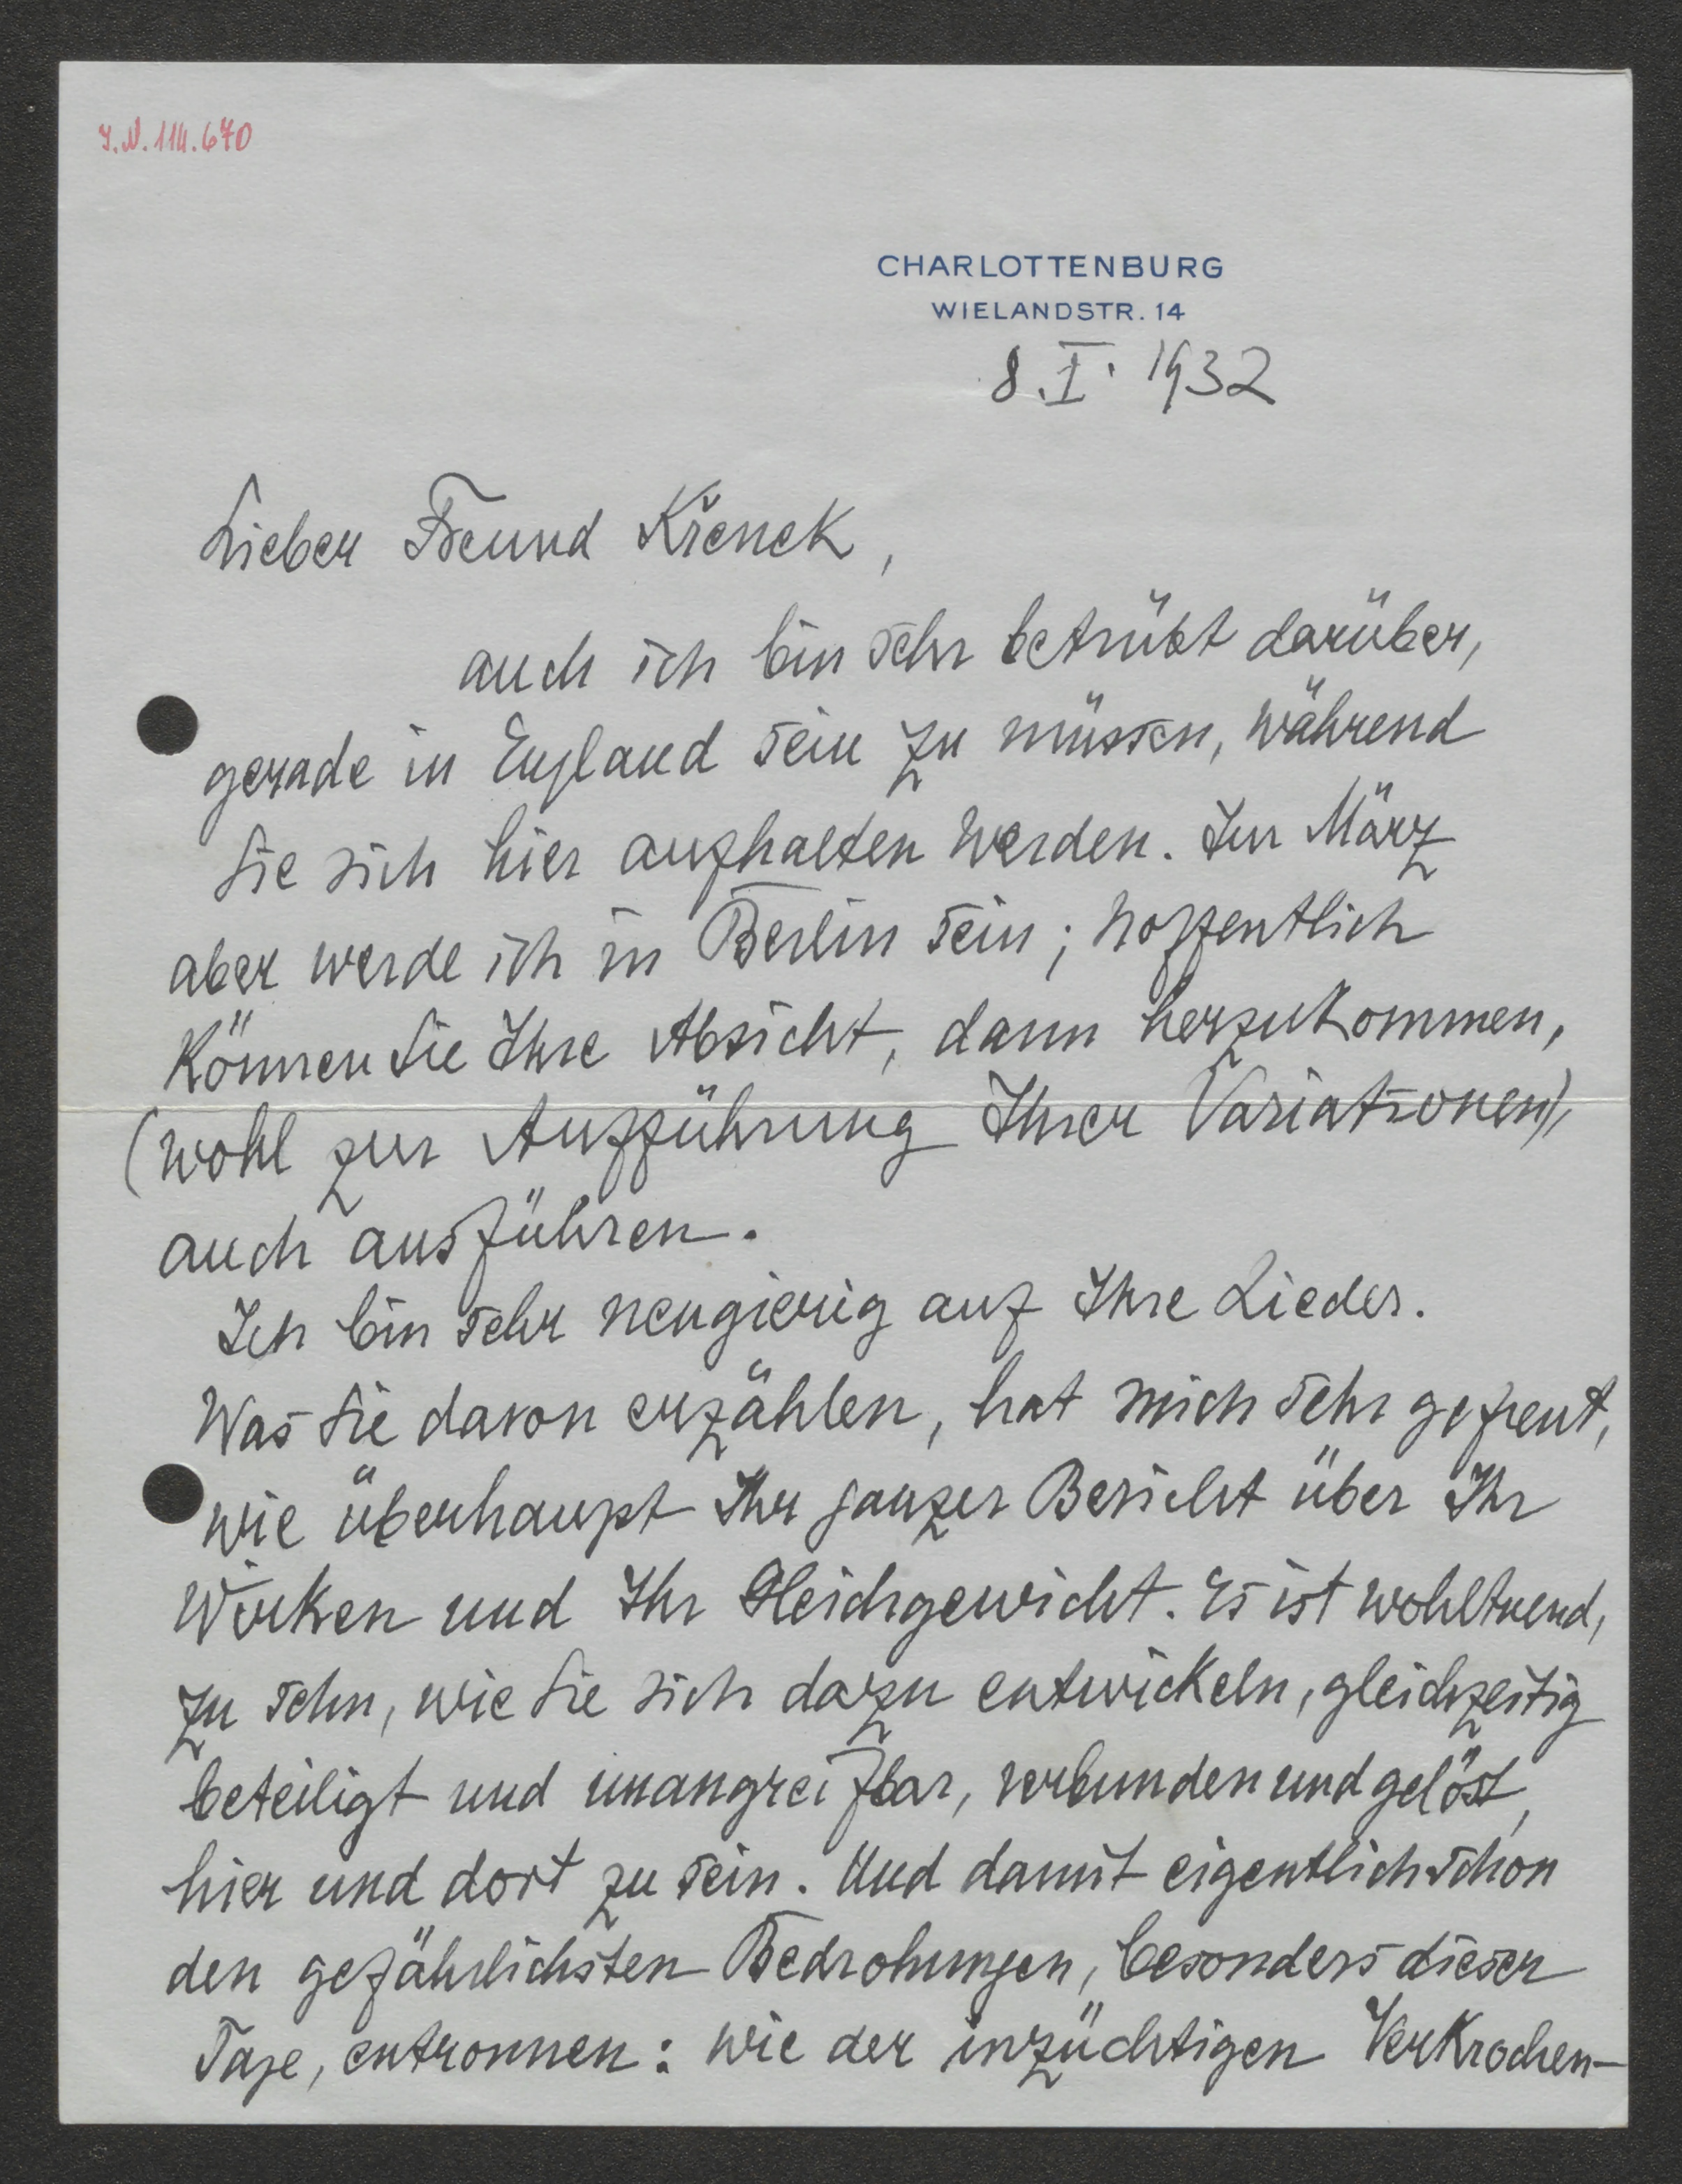 J.N. 114.670
CHARLOTTENBURG
WIELANDSTR. 14
8. I. 1932
Lieber Freund Křenek,
auch ich bin sehr betrübt darüber,
gerade in England sein zu müssen, während
Sie sich hier aufhalten werden. Im März
aber werde ich in Berlin sein; hoffentlich
können Sie Ihre Absicht, dann herzukommen,
(wohl zur Aufführung Ihrer Variationen),
auch ausführen.
Ich bin sehr neugierig auf Ihre Lieder.
Was Sie davon erzählen, hat mich sehr gefreut,
wie überhaupt Ihr ganzer Bericht über Ihr
Wirken und Ihr Gleichgewicht. Es ist wohltuend,
zu sehn, wie Sie sich dazu entwickeln, gleichzeitig
beteiligt und unangreifbar, verbunden und gelöst,
hier und dort zu sein. Und damit eigentlich schon
den gefährlichsten Bedrohungen, besonders dieser
Tage, entronnen: wie der inzüchtigen Verkrochen-